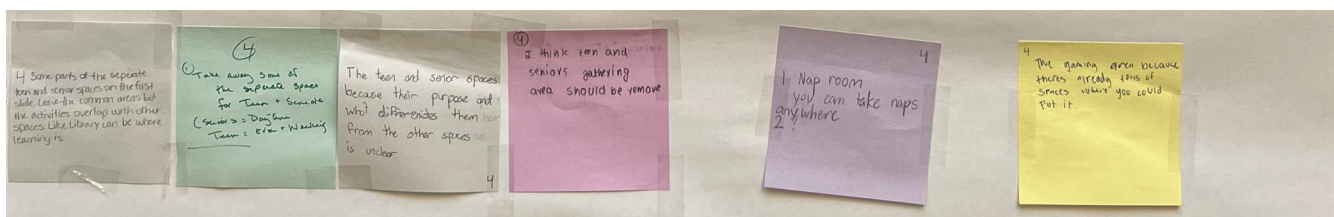 4 Some parts of the seperate
teen and senior spaces on the first
slide. Leave the common areas but
the activities overlap with other
spaces like library can be where
learning is
4
① Take away some of
the separate spaces
for Teen + Seniors
(Seniors = Daytime
Teen = eve + Weekend
The teen and senior spaces
because their purpose and
what differenciates them
from the other spaces
is unclear.
4
④
I think teen and
seniors gathering
area should be remove
4
1 Nap room
you can take naps
anywhere
2
4
The gaming area because
theres already tons of
spaces where you could
put it